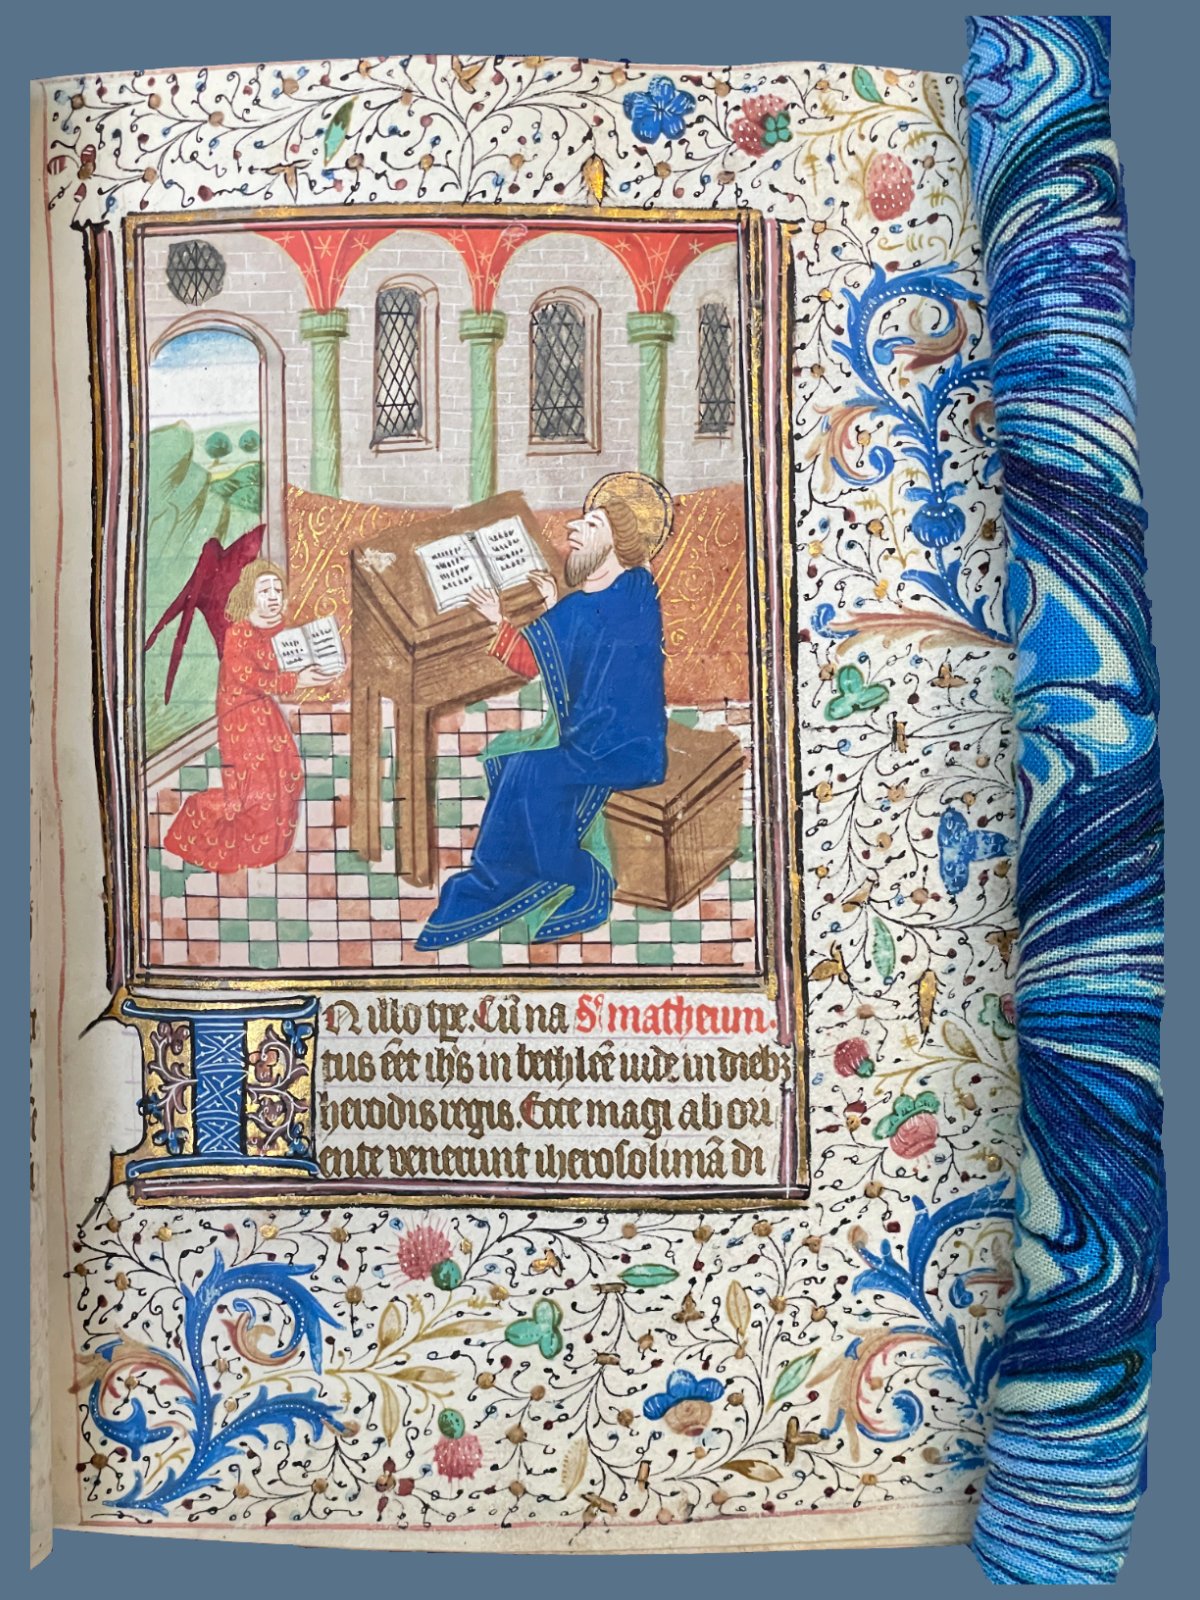 IN illo tp̄e. Cū na Sc̄ matheum.
tus e͞et ih̄s in bethleē iude in dieb⁊
herodis regis. Ecce magi ab ori
ente venerunt iherosolimā di